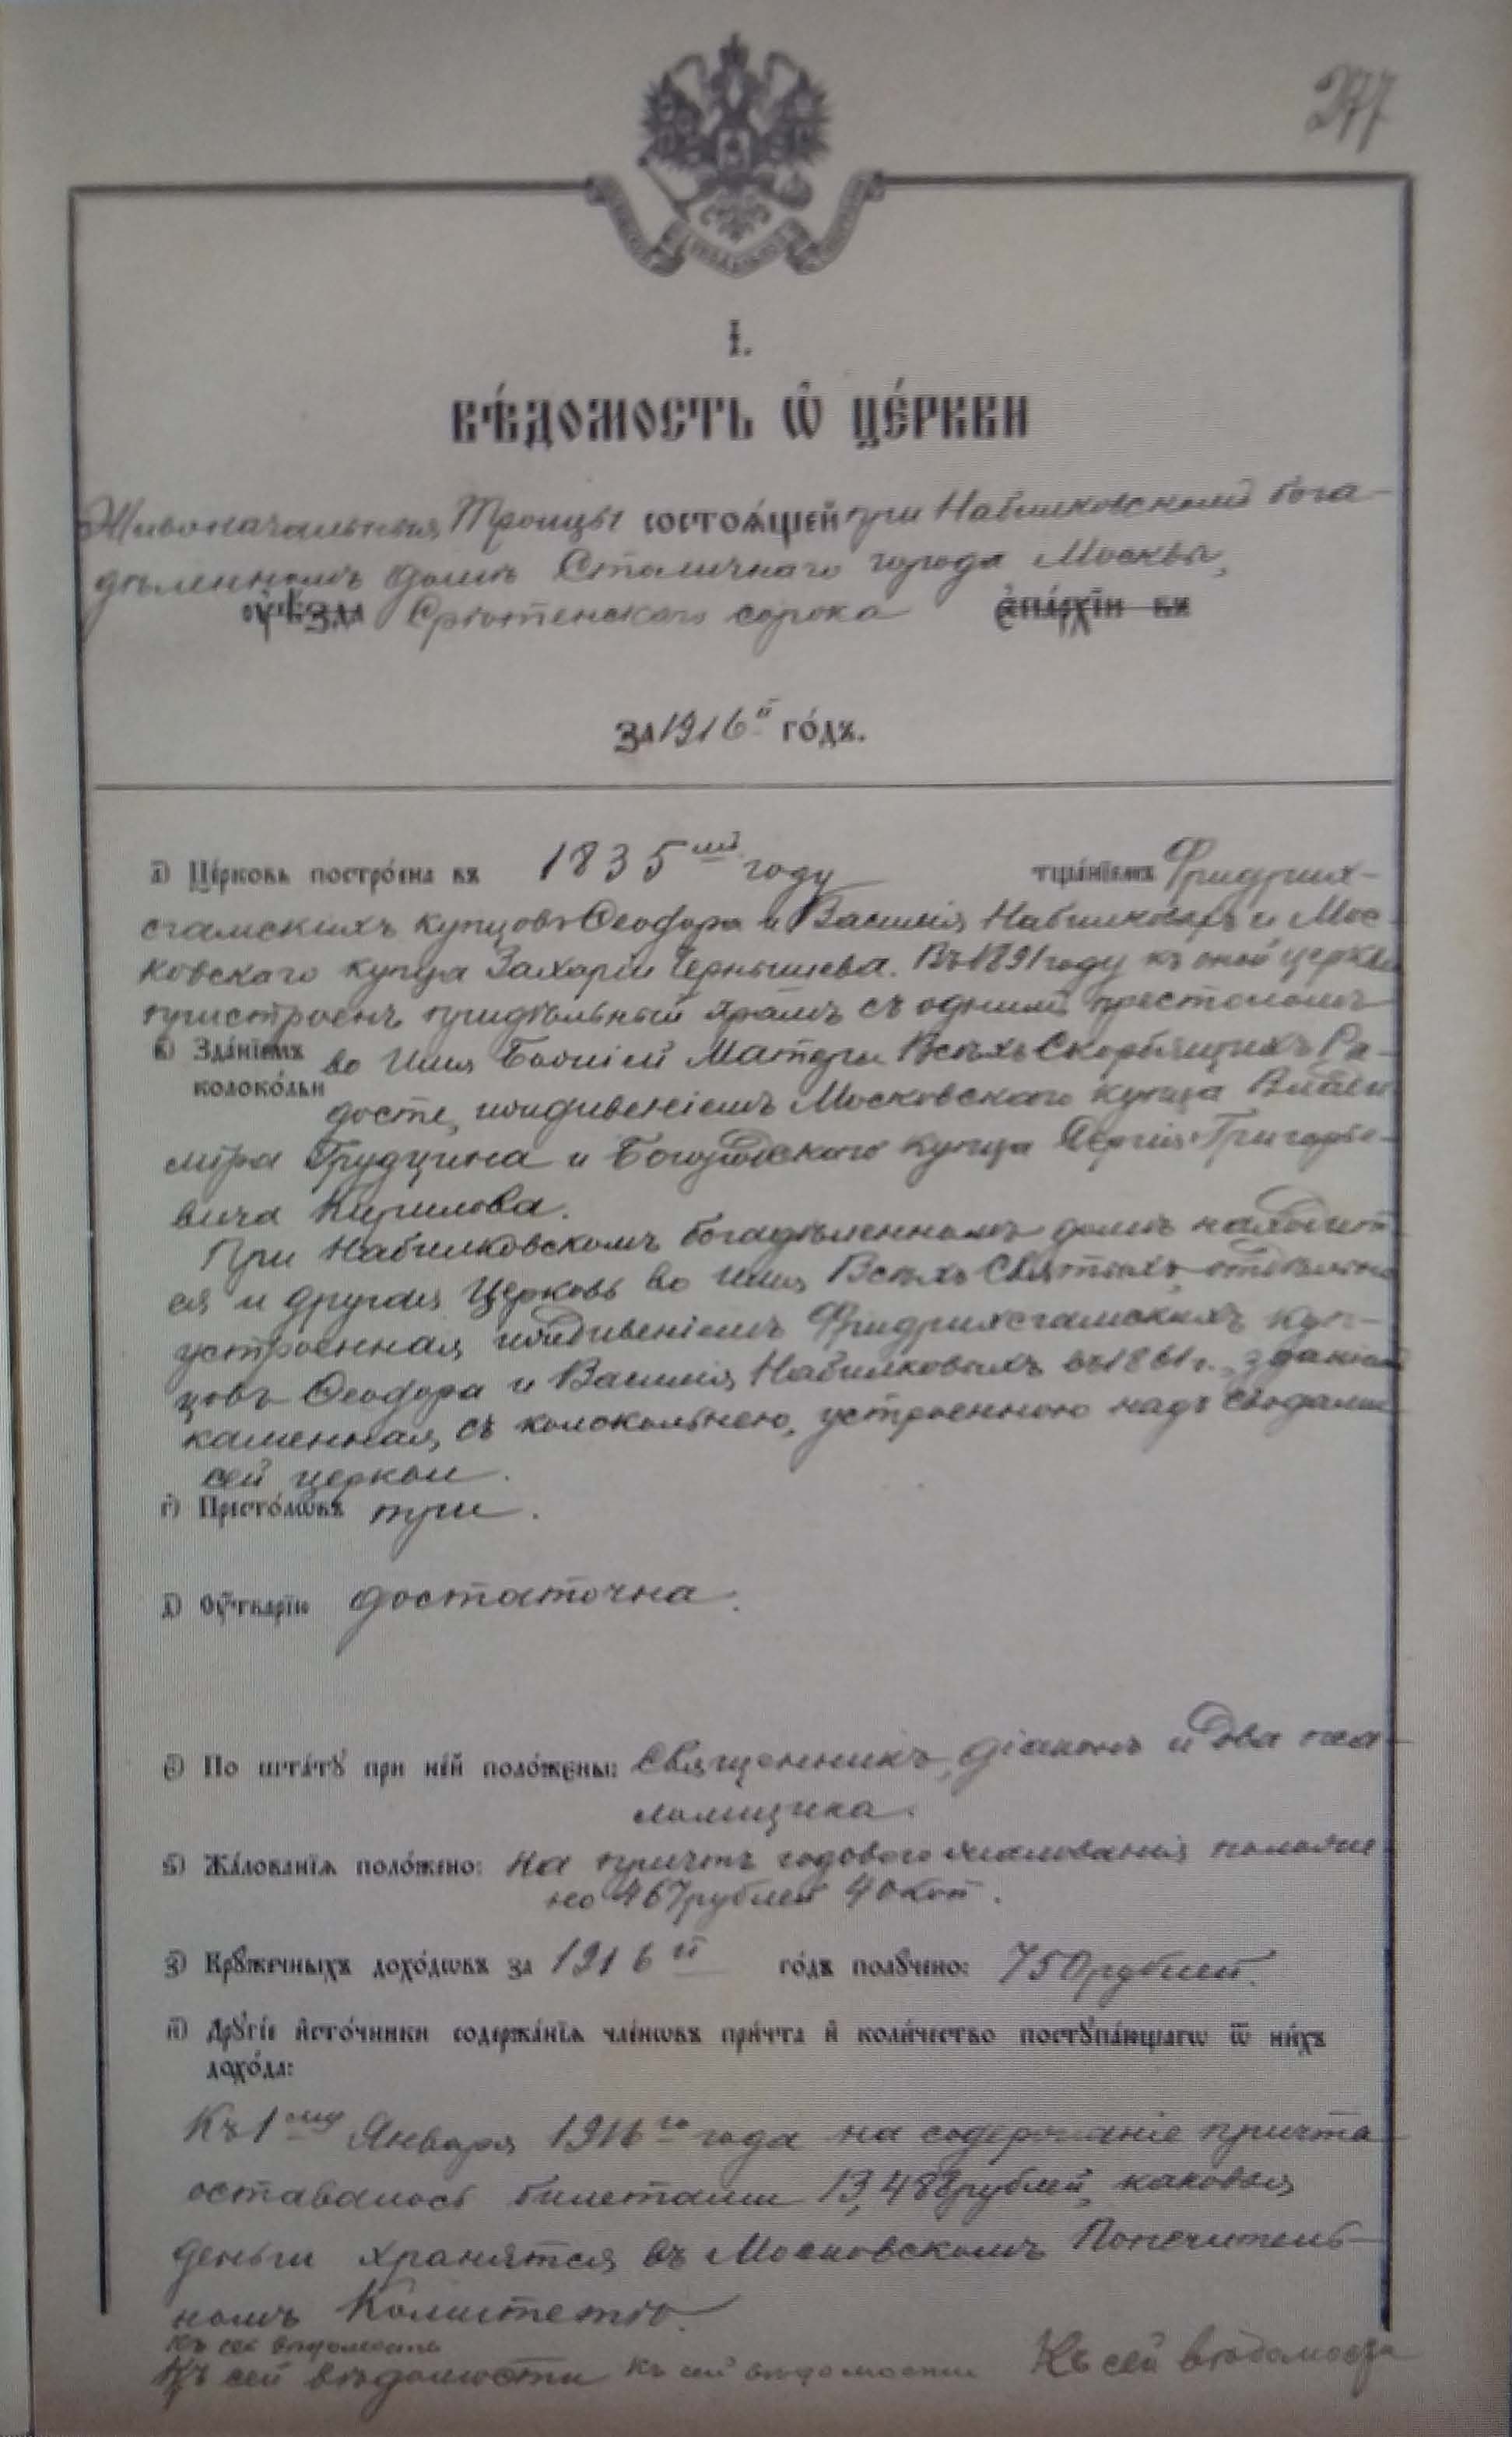 277
I.
ВѢ́ДОМОСТЬ Ѡ҆ ЦЕ́РКВИ
Живоначальныя Троицы состоѧ́щей при Набилковскомъ бога-
дѣленномъ домѣ Столичнаго города Москвы,
оуѣ́зда Срѣтенскаго сорока є҆па́рхїи въ
за 1916й го́дъ.
а҃) Це́рковь постро́ена въ 1835мъ году тща́нїемъ Фридрих-
сгамскихъ купцовъ Ѳеодора и Василія Набилковыхъ и Мос-
ковскаго купца Захаріи Чернышева. Въ 1891 году къ оной церкви
пристроенъ придѣльный храмъ съ однимъ престоломъ
в҃) Зда́нїемъ во имя Божіей Матери Всѣхъ Скорбящихъ Ра-
колоко́льни дости, иждивеніемъ Московскаго купца Влади
міра Грудцина и Богородскаго купца Сергія Григорье-
вича Кирилова.
При Набилковскомъ богадѣленномъ домѣ находит
ся и другая Церковь во имя Всѣхъ Святыхъ, отдѣльно
устроенная иждивеніемъ Фридрихсгамскихъ куп-
цовъ Ѳеодора и Василія Набилковыхъ въ 1861 г., зданіемъ
каменная, съ колокольнею, устроенною надъ сводами
сей церкви.
г҃) Престо́лѡвъ три.
д҃) Оу҆́тварїю достаточна.
є҃) По шта́тꙋ при не́й поло́жены: Священникъ, діаконъ и два пса-
ломщика.
ѕ҃) Жа́лованїѧ поло́жено: На причтъ годового жалованія положе
но 467 рублей 40 коп.
з҃) Крꙋ́жечныхъ дохо́дѡвъ за 1916й го́дъ полꙋ́чено: 750 рублей.
и҃) Дрꙋгі́е и҆сто́чники содержа́нїѧ чле́нѡвъ при́чта и҆ коли́чество постꙋпа́ющагѡ ѿ ни́хъ
дохо́да:
Къ 1му Января 1916го года на содержаніе причта
оставалось билетами 13,488 рублей, каковыя
деньги хранятся въ Московскомъ Попечитель-
номъ Комитетѣ.
Къ сей вѣдомости
Къ сей вѣдомости Къ сей вѣдомости Къ сей вѣдомости